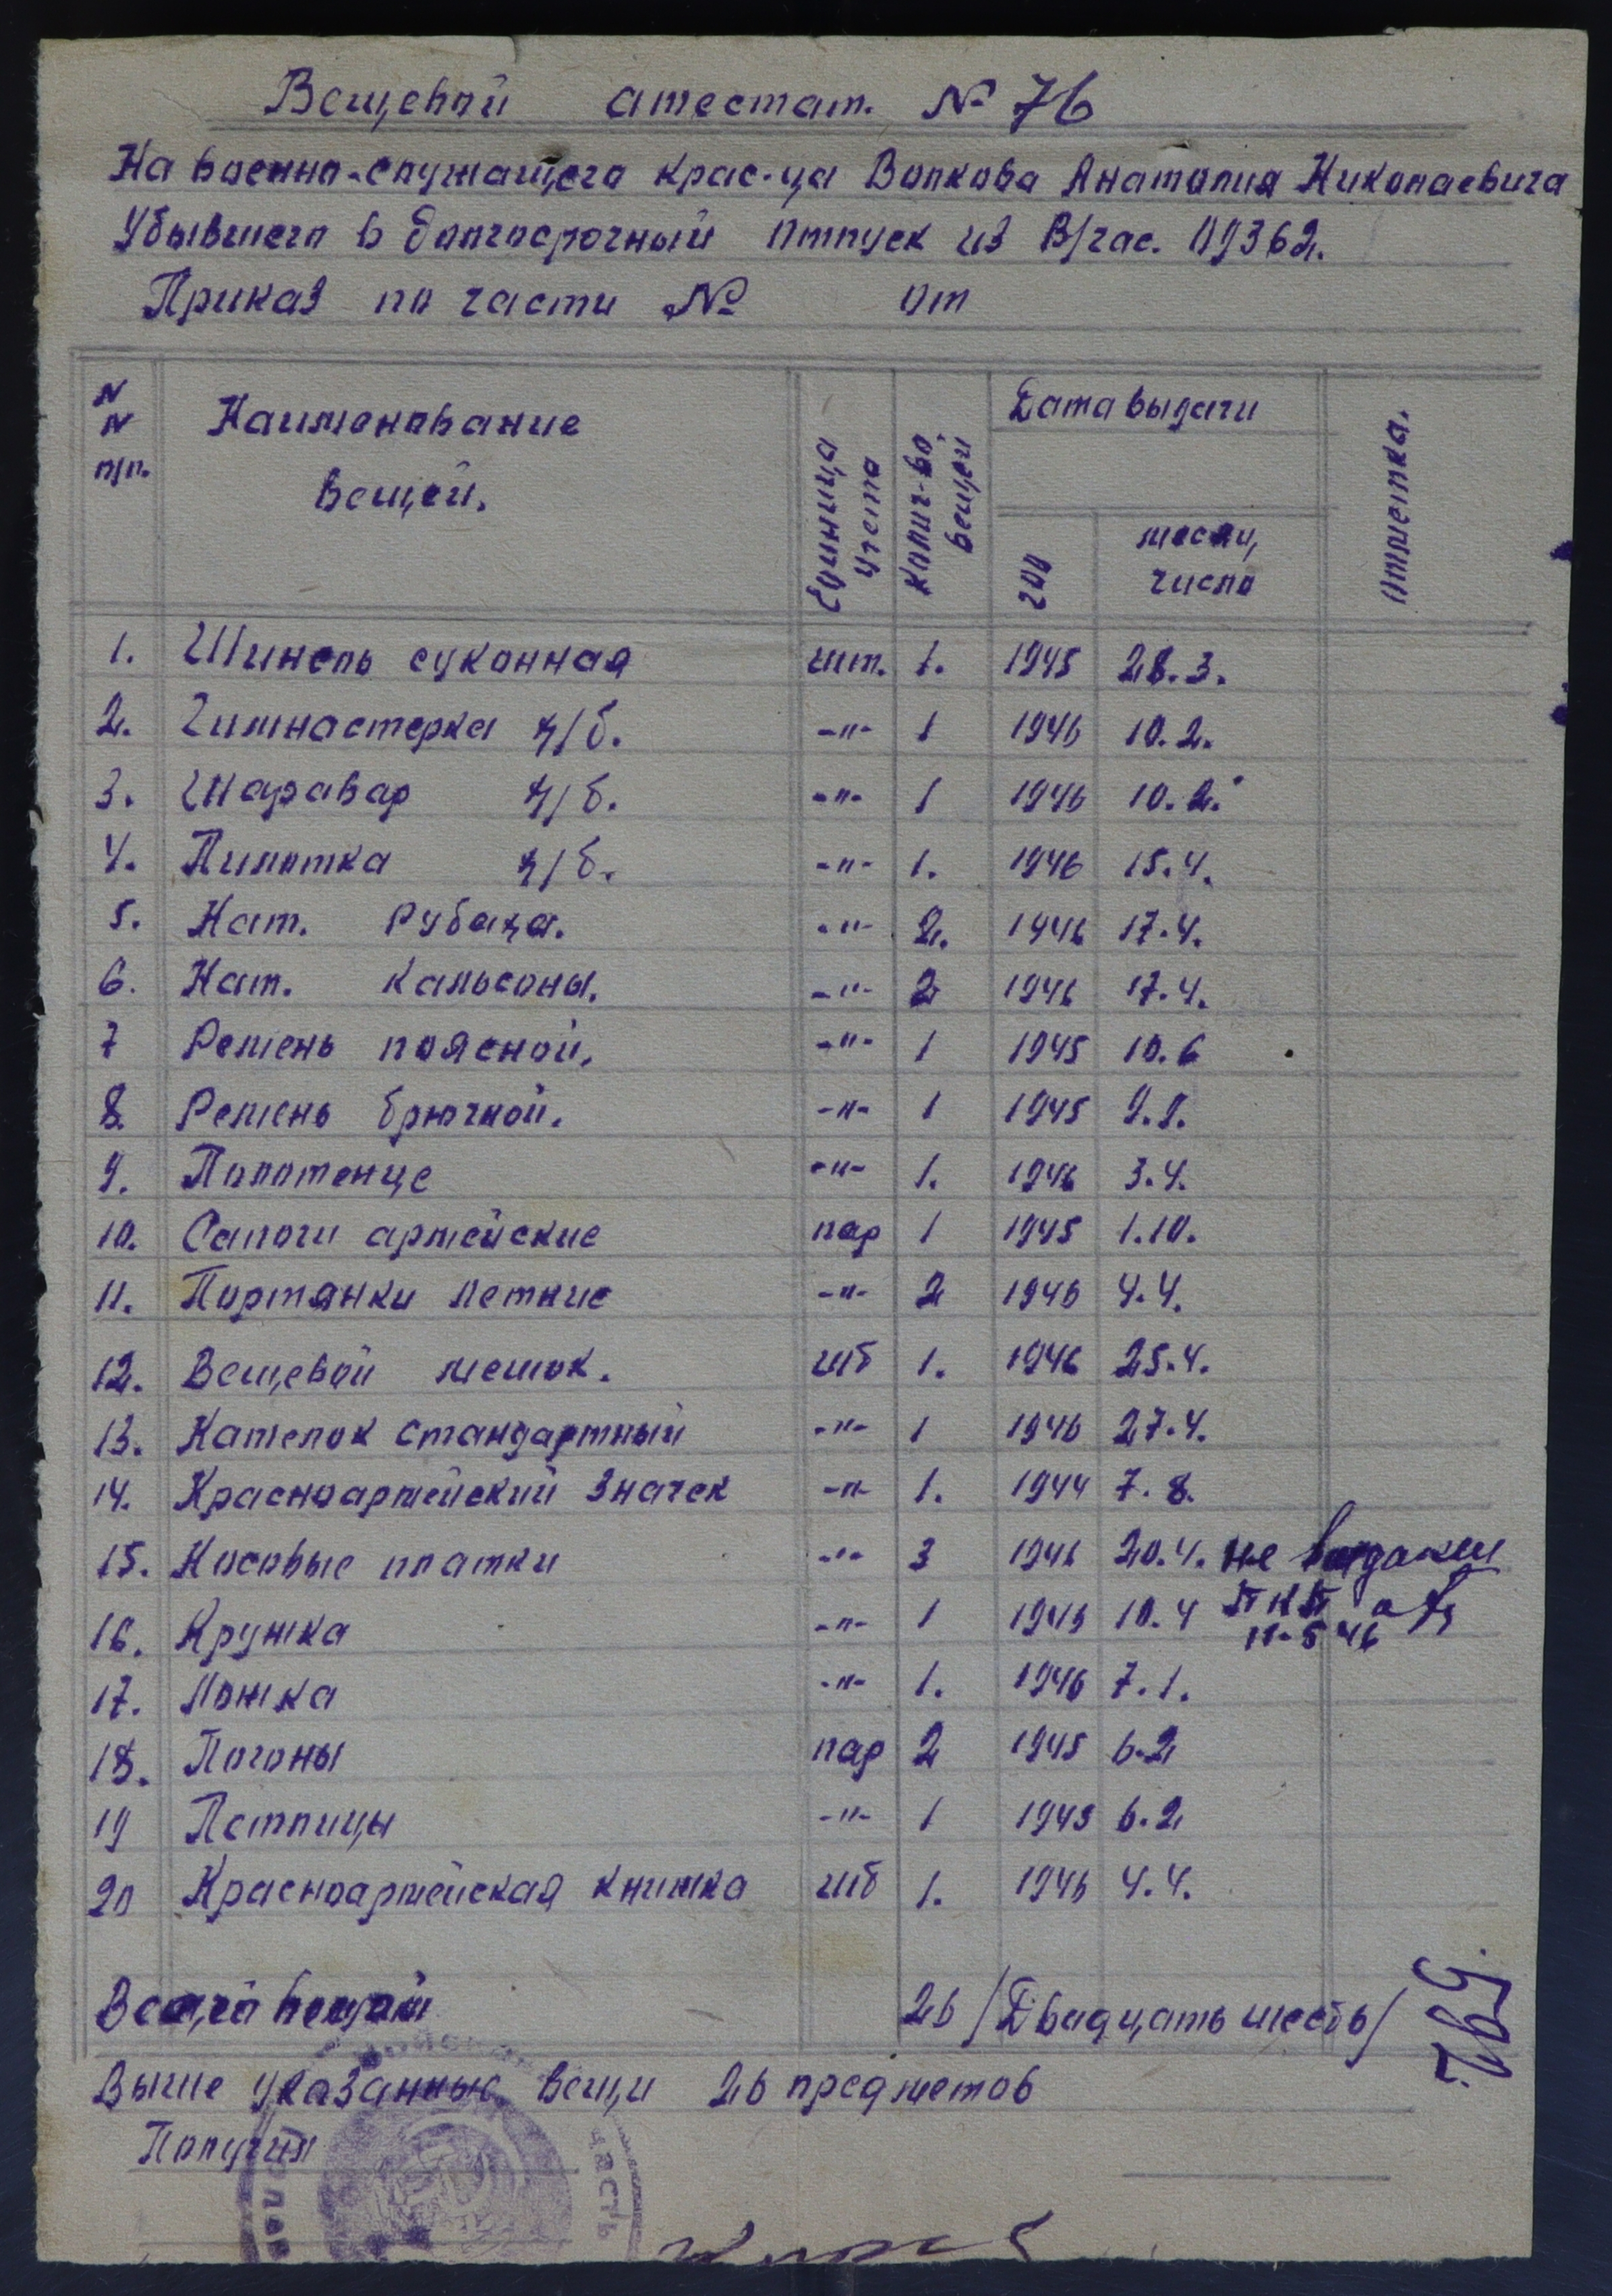 Вещевой атестат. № 76
На военно-служащего крас-ца Волкова Анатолия Николаевича
Убывшего в долгосрочный отпуск из В/час. 09362.
Приказ по части № от
N N п/п. Наименование вещей. Единица учета Колич-во вещей Дата выдачи год месяц, число Отметка.
1. Шинель суконная шт. 1. 1945 28.3.
2. Гимнастерка х/б. -"- 1 1946 10.2.
3. Шаравар х/б. -"- 1 1946 10.2.
4. Пилотка х/б. -"- 1. 1946 15.4.
5. Нат. Рубаха. -"- 2. 1946 17.4.
6. Нат. Кальсоны. -"- 2 1946 17.4.
7 Ремень поясной. -"- 1 1945 10.6
8. Ремень брючной. -"- 1 1945 9.9.
9. Полотенце -"- 1. 1946 3.4.
10. Сапоги армейские пар 1 1945 1.10.
11. Портянки летние -"- 2 1946 4.4.
12. Вещевой мешок. шт 1. 1946 25.4.
13. Кателок стандартный -"- 1 1946 27.4.
14. Красноармейский значек -"- 1. 1944 7.8.
15. Носовые платки -"- 3 1946 20.4. не выданы
16. Кружка -"- 1 1945 10.4 ПКП
11-5 46
17. Ложка -"- 1. 1946 7.1.
18. Погоны пар 2 1945 6.2
19 Петлицы -"- 1 1945 6.2
20 Красноармейская книжка шт 1. 1946 4.4.
Всего вещей 26 /Двадцать шесть/
Выше указанные вещи 26 предметов
Получил
часть